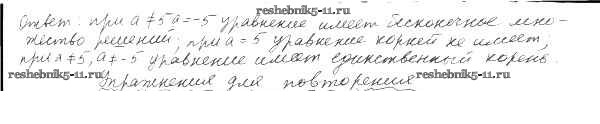 reshebnik5-11.ru
Ответ: при а ≠ 5 а = -5 уравнение имеет бесконечное мно-
жество решений; при а = 5 уравнение корней не имеет;
при а ≠ 5, а ≠ -5 уравнение имеет единственный корень.
reshebnik5-11.ru reshebnik5-11.ru
Упражнения для повторения